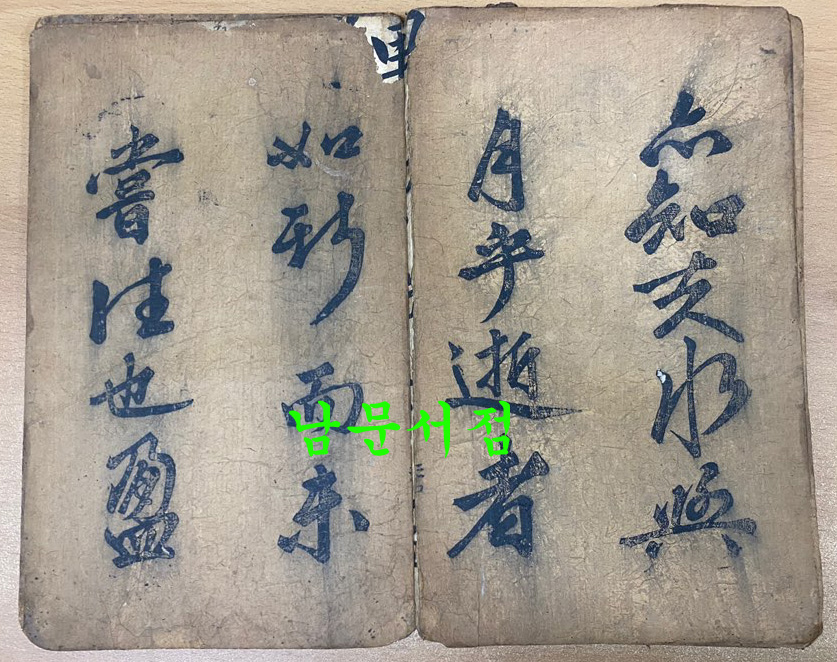 亦知夫水與
月乎逝者
如斯而未
嘗往也盈
남문서점